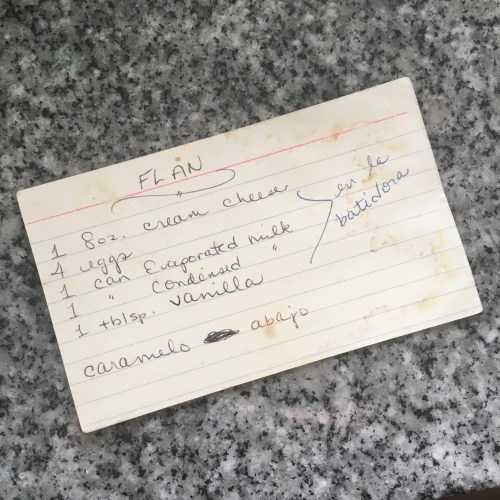 FLAN
1 8oz. cream cheese
4 eggs
1 can Evaporated milk
1 " Condensed "
1 tblsp. vanilla
en la
batidora
caramelo abajo